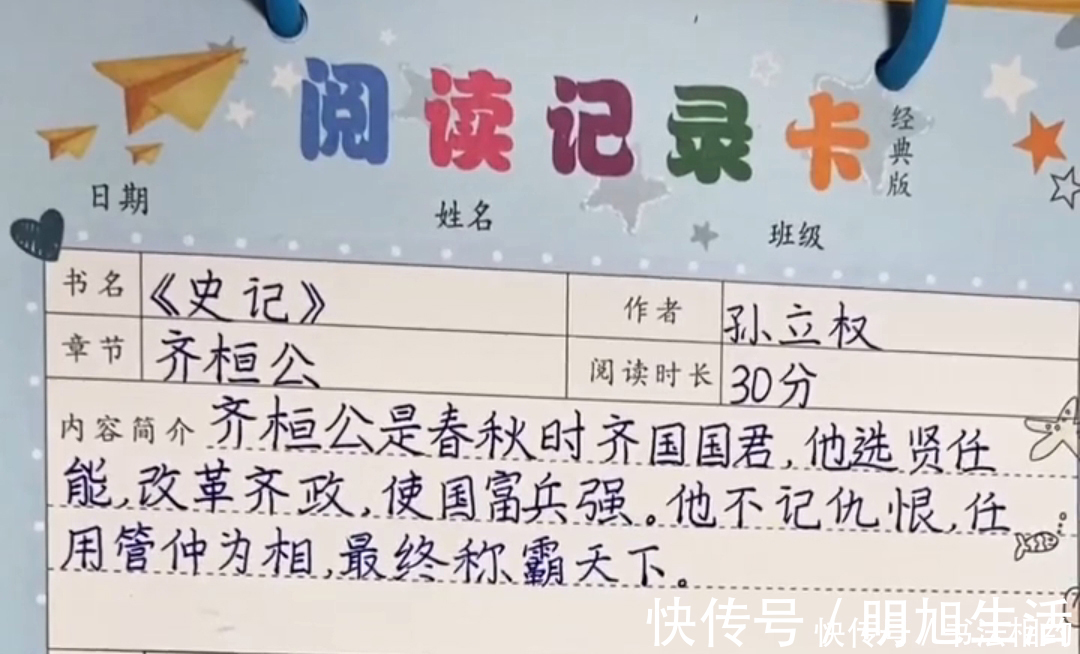 阅读记录卡
经典版
日期 姓名 班级
书名 《史记》 作者 孙立权
章节 齐桓公 阅读时长 30分
内容简介 齐桓公是春秋时齐国国君,他选贤任
能,改革齐政,使国富兵强。他不记仇恨,任
用管仲为相,最终称霸天下。
快传号 / 明旭生活
快传号 / 书法相约